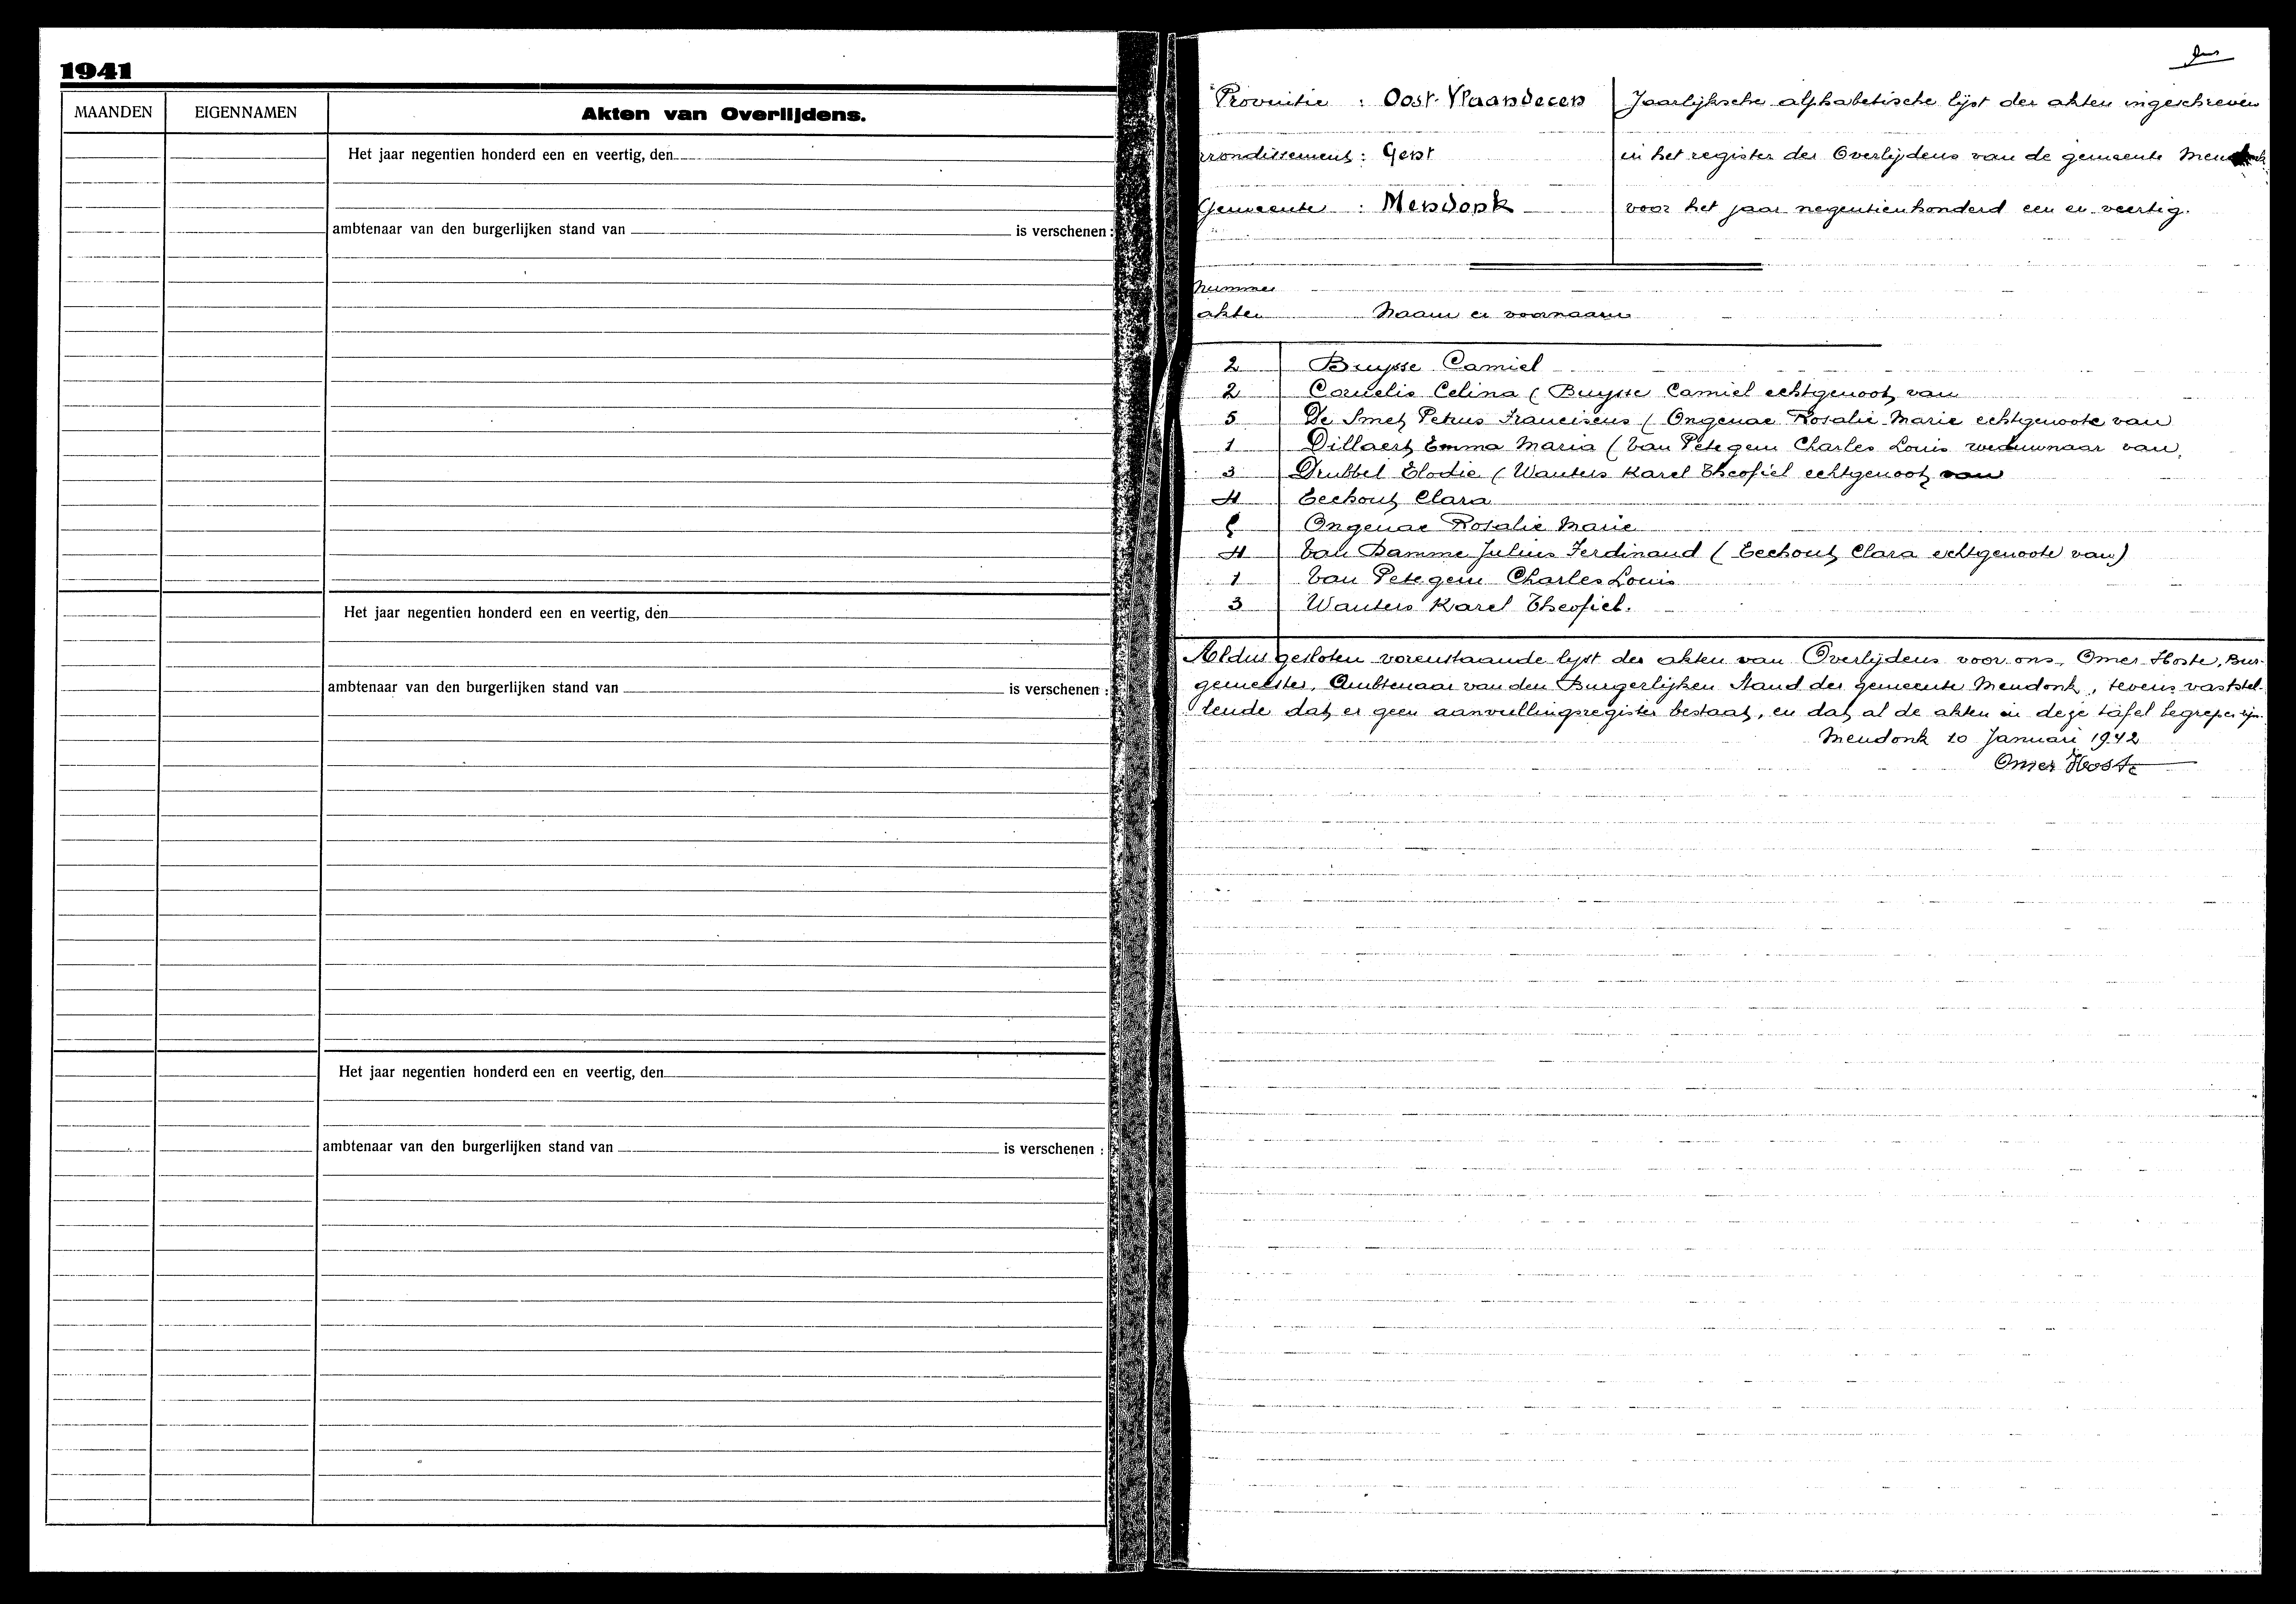 1941
MAANDEN EIGENNAMEN Akten van Overlijdens.
Het jaar negentien honderd een en veertig, den
ambtenaar van den burgerlijken stand van is verschenen :
Het jaar negentien honderd een en veertig, den
ambtenaar van den burgerlijken stand van is verschenen :
Het jaar negentien honderd een en veertig, den
ambtenaar van den burgerlijken stand van is verschenen :
Provintie : Oost-Vlaanderen
rrondissement : Gent
Gemeente : Mendonk
Jaarlijksche alphabetische lijst der akten ingeschreven
in het register der Overlijdens van de gemeente Mendonk
voor het jaar negentienhonderd een en veertig.
Nummer
akten Naam en voornaam
2 Buysse Camiel
2 Cornelis Celina ( Buysse Camiel echtgenoot van
5 De Smet Petrus Franciscus ( Ongenae Rosalie Marie echtgenoote van
1 Dillaert Emma Maria ( Van Petegem Charles Louis weduwnaar van
3 Drubbel Elodie ( Wauters Karel Theofiel echtgenoot van
4 Eeckout Clara
5 Ongenae Rosalie Marie
4 Van Damme Julius Ferdinand ( Eeckout Clara echtgenoote van)
1 Van Petegem Charles Louis
3 Wauters Karel Theofiel.
Aldus gesloten vorenstaande lijst der akten van Overlijdens voor ons, Omer Hoste, Bur-
gemeester, Ambtenaar van den Burgerlijken Stand der gemeente Mendonk, tevens vaststel-
lende dat er geen aanvullingsregister bestaat, en dat al de akten in deze tafel begrepen zijn.
Mendonk 10 Januari 1942
Omer Hoste